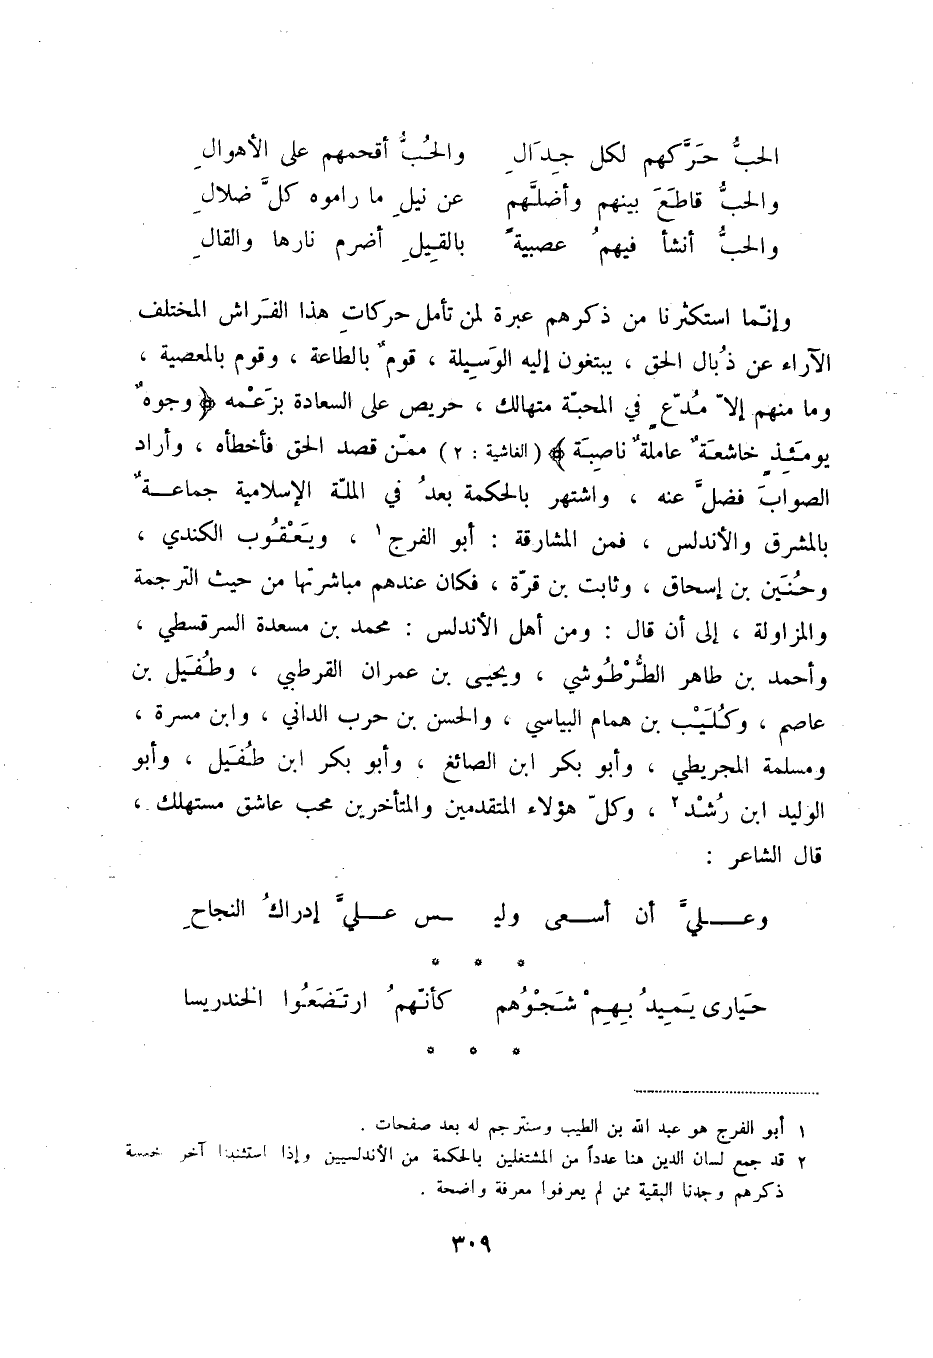 الحبُّ حَرَّكهم لكل جِدَالِ والحُبُّ أقحمهم على الأهوالِ
والحبُّ قاطَعَ بينهم وأضلَّهم عن نيلِ ما راموه كلَّ ضلالِ
والحبُّ أنشأ فيهمُ عصبيةً بالقيلِ أضرم نارها والقالِ
وإنّما استكثرنا من ذكرهم عبرة لمن تأمل حركاتِ هذا الفَراش المختلف
الآراء عن ذُبال الحق ، يبتغون إليه الوَسيلة ، قومٌ بالطاعة ، وقوم بالمعصية ،
وما منهم إلاّ مُدّعٍ في المحبّة متهالك ، حريص على السعادة بزَعْمه ﴿ وجوهٌ
يومئذٍ خاشعةٌ عاملةٌ ناصِبَة ﴾ ( الغاشية : ٢ ) ممّن قصد الحق فأخطأه ، وأراد
الصوابَ فضلَّ عنه ، واشتهر بالحكمة بعدُ في الملّة الإسلامية جماعـــةٌ
بالمشرق والأندلس ، فمن المشارقة : أبو الفرج ١ ، ويَعْقُوب الكندي ،
وحُنَين بن إسحاق ، وثابت بن قرّة ، فكان عندهم مباشرتها من حيث الترجمة
والمزاولة ، إلى أن قال : ومن أهل الأندلس : محمد بن مسعدة السرقسطي ،
وأحمد بن طاهر الطُّرْطُوشي ، ويحيى بن عمران القرطبي ، وطُفَيل بن
عاصم ، وكُلَيْب بن همام البياسي ، والحسن بن حرب الداني ، وابن مسرة ،
ومسلمة المجريطي ، وأبو بكر ابن الصائغ ، وأبو بكر ابن طُفَيل ، وأبو
الوليد ابن رُشْد ٢ ، وكلّ هؤلاء المتقدمين والمتأخرين محب عاشق مستهلك ،
قال الشاعر :
وعـــليَّ أن أســـعى وليـ ـــس عـــليَّ إدراكُ النجاحِ
* * *
حَيارى يَميدُ بِهِمْ شَجْوُهم كأنّهمُ ارتَضَعُوا الخندريسا
* * *
١ أبو الفرج هو عبد الله بن الطيب وسنترجم له بعد صفحات .
٢ قد جمع لسان الدين هنا عدداً من المشتغلين بالحكمة من الأندلسيين وإذا استثنينا آخر خمسة
ذكرهم وجدنا البقية ممن لم يعرفوا معرفة واضحة .
٣٠٩